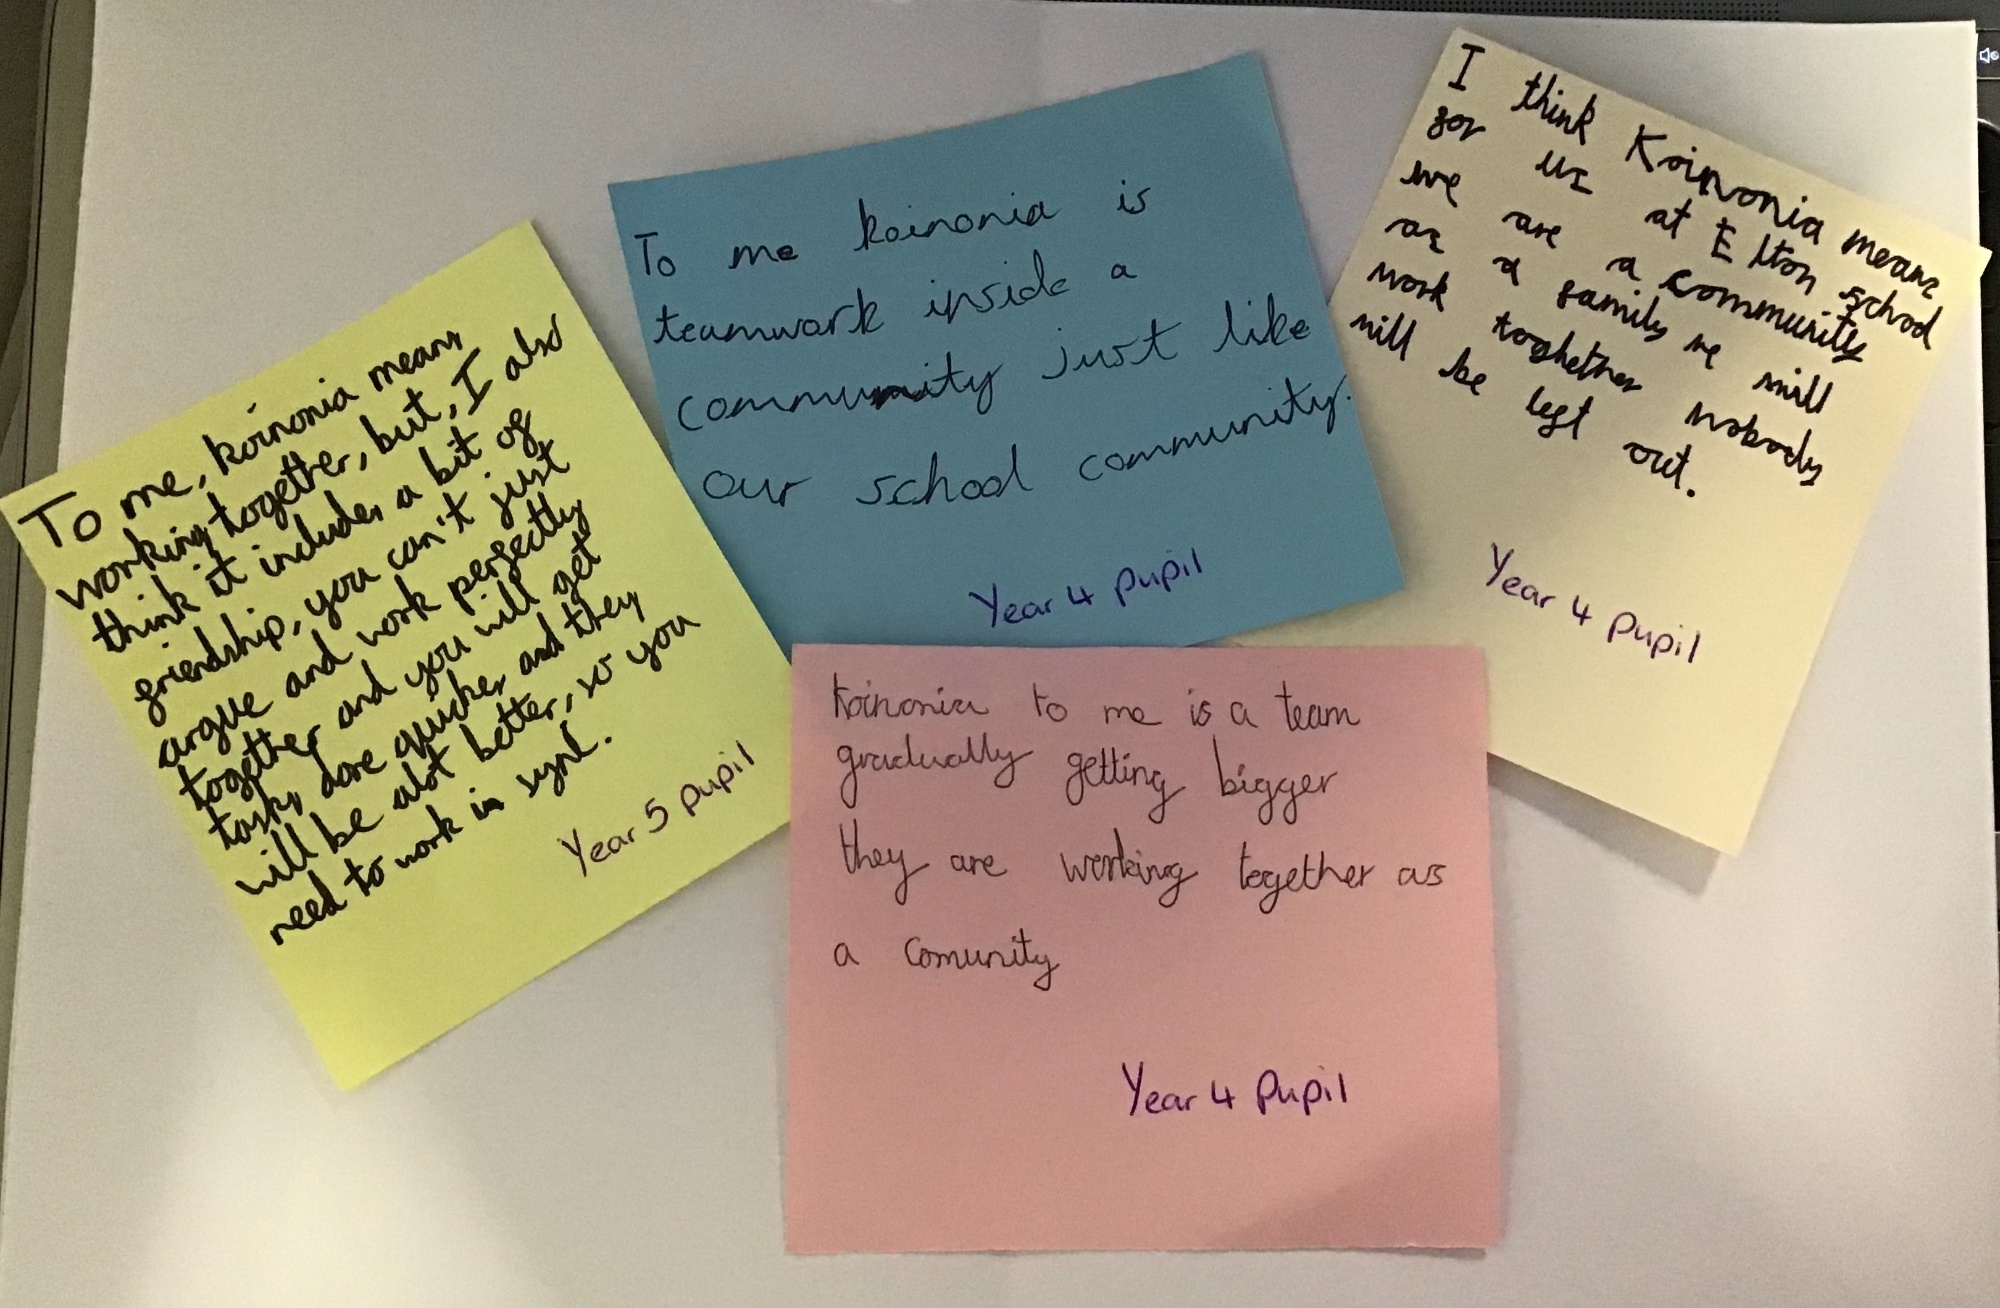 To me, koinonia means
working together, but, I also
think it includes a bit of
friendship, you can't just
argue and work perfectly
together and you will get
tasks done quicker and they
will be alot better, so you
need to work in sync.
Year 5 pupil
To me koinonia is
teamwork inside a
community just like
our school community.
Year 4 pupil
I think Koinonia means
for us at Elton school
we are a community
as a family we will
work toghether nobody
will be left out.
Year 4 pupil
Koinonia to me is a team
gradually getting bigger
they are working together as
a comunity
Year 4 Pupil